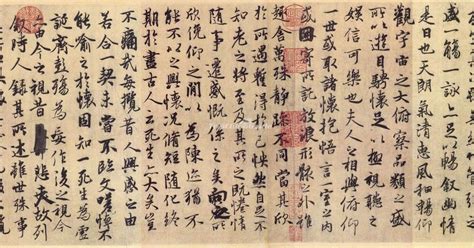 盛一觴一詠亦足以暢敘幽情
是日也天朗氣清惠風和暢仰
觀宇宙之大俯察品類之盛
所以遊目騁懷足以極視聽之
娛信可樂也夫人之相與俯仰
一世或取諸懷抱悟言一室之內
或因寄所託放浪形骸之外雖
趣舍萬殊靜躁不同當其欣
於所遇暫得於己快然自足不
知老之將至及其所之既惓情
隨事遷感慨係之矣向之所
欣俛仰之間以為陳迹猶不
能不以之興懷況脩短隨化終
期於盡古人云死生亦大矣豈
不痛哉每攬昔人興感之由
若合一契未嘗不臨文嗟悼不
能喻之於懷固知一死生為虛
誕齊彭殤為妄作後之視今
亦由今之視昔悲夫故列
敘時人錄其所述雖世殊事